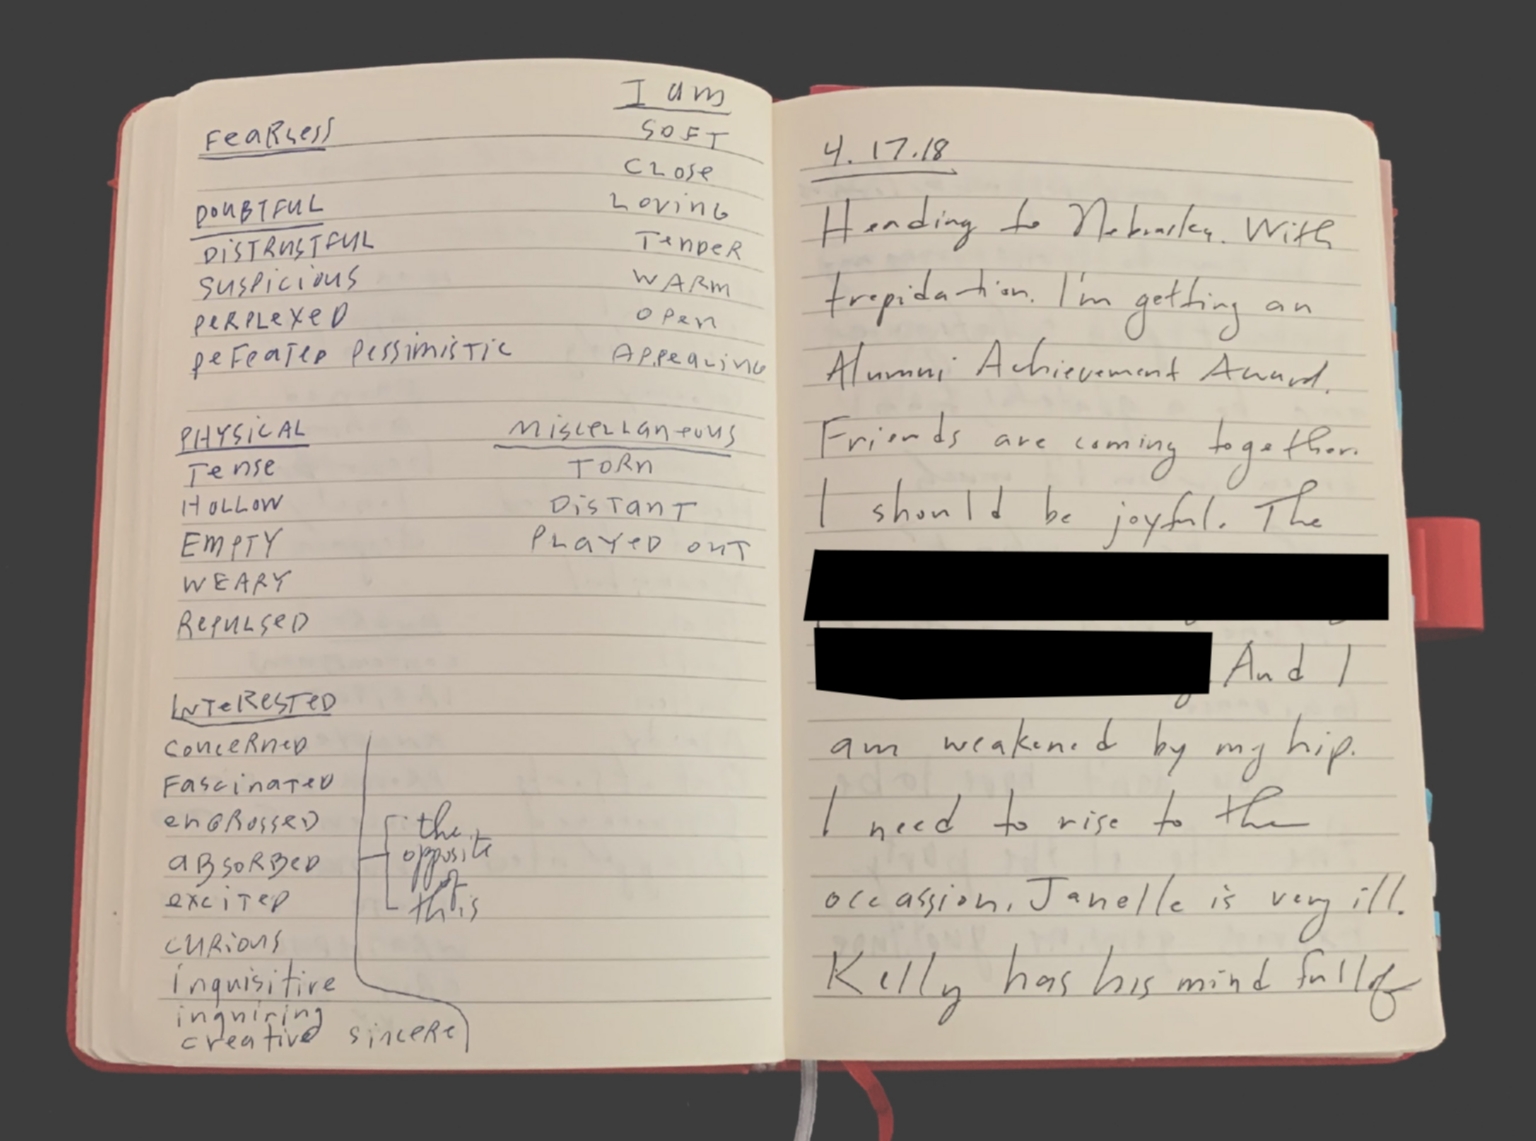 I am
FeaRLess
SOFT
CLOSe
DOUBTFUL
Loving
DiSTRUSTFUL
TenDeR
SUSPiCiOUS
WARm
PeRPLeXeD
OPen
DeFeaTeD PeSSimiSTiC
APPeaLinG
PHYSiCAL
miSCeLLaneous
Tense
TORn
HOLLOW
DiSTanT
EMPTY
PLAYeD OUT
WEARY
RePULSeD
InTeResTeD
COnCeRneD
FasCinaTeD
enGRosseD
ABSORBeD
exCiTeD
CURiOUS
Inquisitive
inquiring
creative sinceRe
the
opposite
of
this
4.17.18
Heading to Nebraska. With
trepidation. I'm getting an
Alumni Achievement Award.
Friends are coming together.
I should be joyful. The
And I
am weakened by my hip.
I need to rise to the
occassion. Janelle is very ill.
Kelly has his mind full of